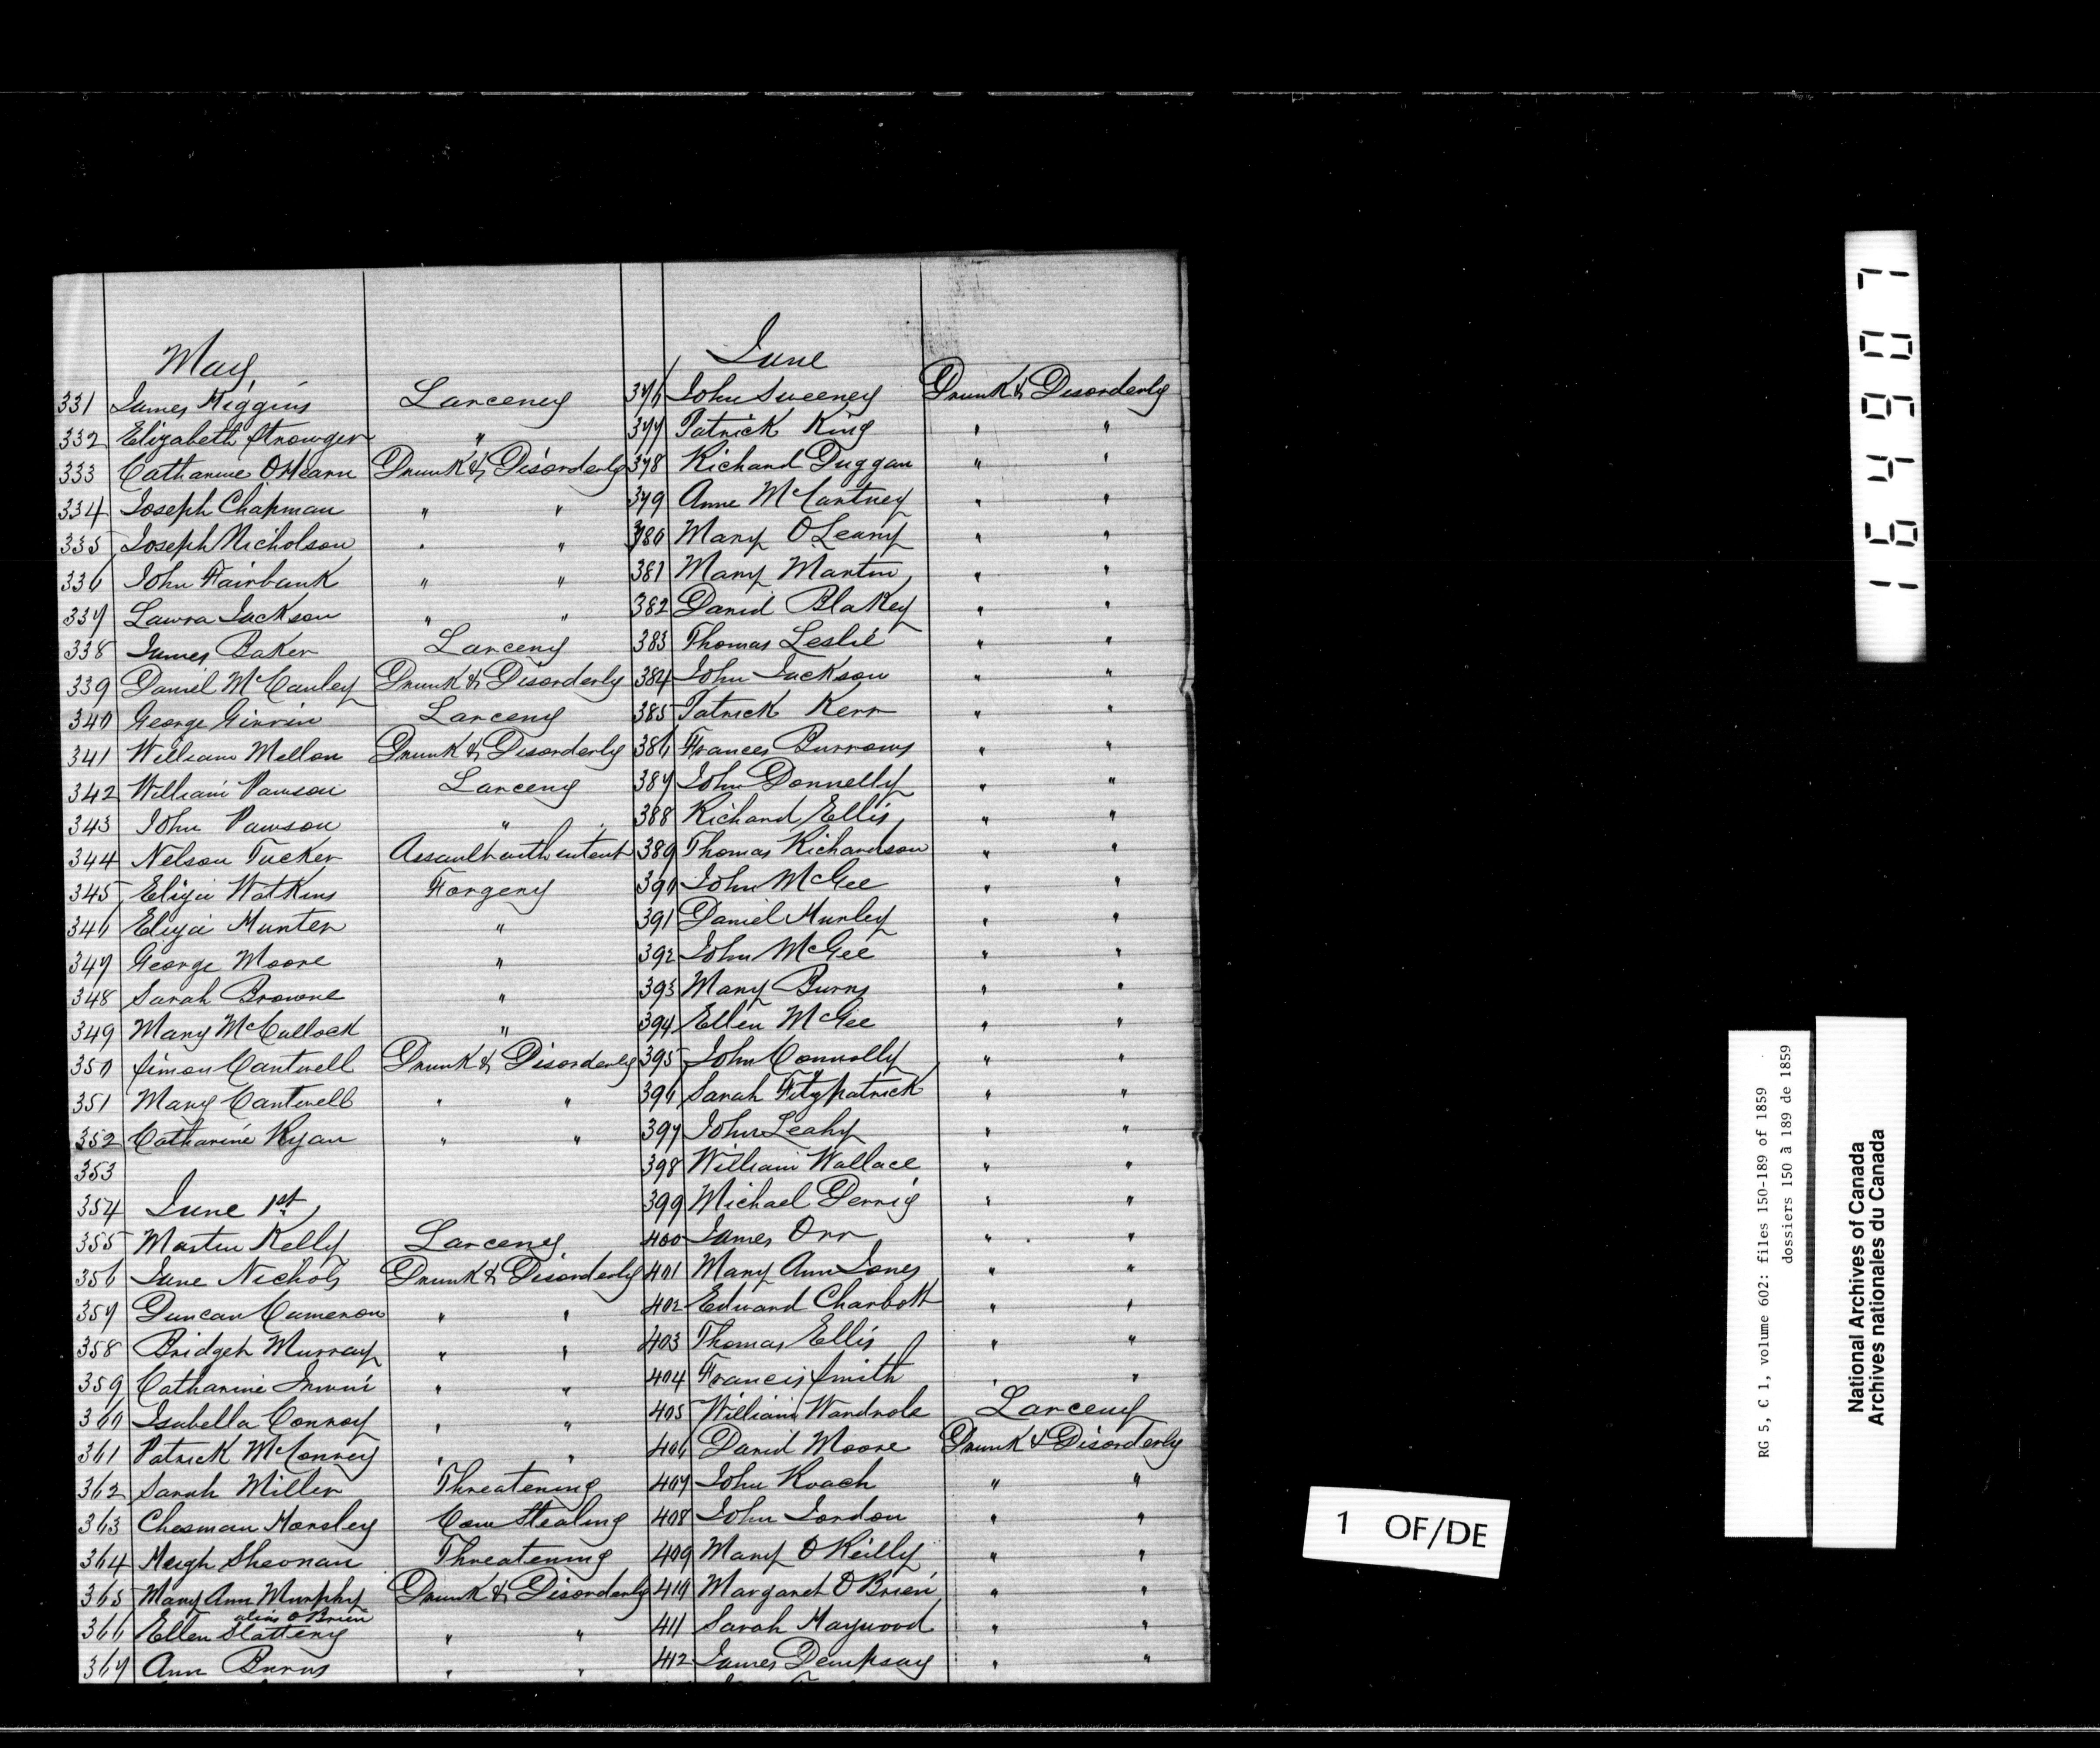 May
331 James Higgins Larceney
332 Elizabeth Strowger "
333 Catharine OHearn Drunk & Disorderly
334 Joseph Chapman " "
335 Joseph Nicholson " "
336 John Fairbank " "
337 Laura Jackson " "
338 James Baker Larceny
339 Daniel McCauley Drunk & Disorderly
340 George Girvin Larceny
341 William Mellon Drunk & Disorderly
342 William Pawson Larceny
343 John Pawson "
344 Nelson Tucker Assault with intent
345 Eliza Watkins Forgery
346 Eliza Hunter "
347 George Moore "
348 Sarah Browne "
349 Mary McCullock "
350 Simon Cantwell Drunk & Disorderly
351 Mary Cantwell " "
352 Catharine Ryan " "
353
354 June 1st
355 Martin Kelly Larceny
356 Jane Nichols Drunk & Disorderly
357 Duncan Cameron " "
358 Bridget Murray " "
359 Catharine Irwin " "
360 Isabella Conroy " "
361 Patrick McConvey " "
362 Sarah Miller Threatening
363 Chesman Horsley Cow Stealing
364 Hugh Sheonan Threatening
365 Mary Ann Murphy Drunk & Disorderly
alias O Brien
366 Ellen Slattery " "
367 Ann Burns " "
June
376 John Sweeney Drunk & Disorderly
377 Patrick King " "
378 Richard Duggan " "
379 Anne McCartney " "
380 Mary O Leary " "
381 Mary Martin " "
382 David Blakey " "
383 Thomas Leslie " "
384 John Jackson " "
385 Patrick Kerr " "
386 Frances Burrows " "
387 John Donnelly " "
388 Richard Ellis " "
389 Thomas Richardson " "
390 John McGee " "
391 Daniel Hurley " "
392 John McGee " "
393 Mary Burns " "
394 Ellen McGee " "
395 John Connolly " "
396 Sarah Fitzpatrick " "
397 John Leahy " "
398 William Wallace " "
399 Michael Derrig " "
400 James Orr " "
401 Mary Ann Jones " "
402 Edward Charbott " "
403 Thomas Ellis " "
404 Francis Smith " "
405 William Wardrole Larceny
406 David Moore Drunk & Disorderly
407 John Roach " "
408 John Jordon " "
409 Mary O Reilly " "
410 Margaret O Brien " "
411 Sarah Haywood " "
412 James Dempsay " "
1 OF/DE
RG 5, C 1, volume 602: files 150-189 of 1859
dossiers 150 à 189 de 1859
National Archives of Canada
Archives nationales du Canada
164907